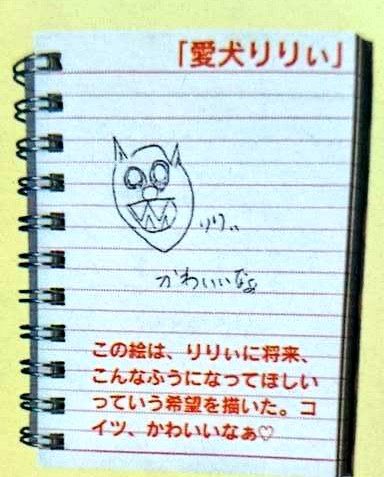 「愛犬りりぃ」
りりぃ
かわいいなぁ
この絵は、りりぃに将来、
こんなふうになってほしい
っていう希望を描いた。コ
イツ、かわいいなぁ♡